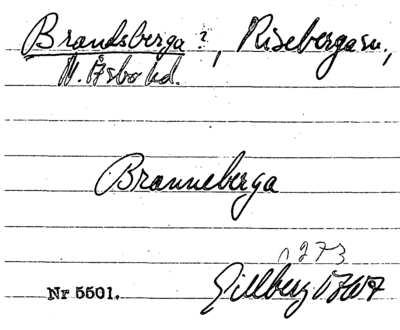 Brandsberga?, Risebergasn.,
N. Åsbo hd.
Branneberga
s 273
Nr 5501. Gillberg 1767